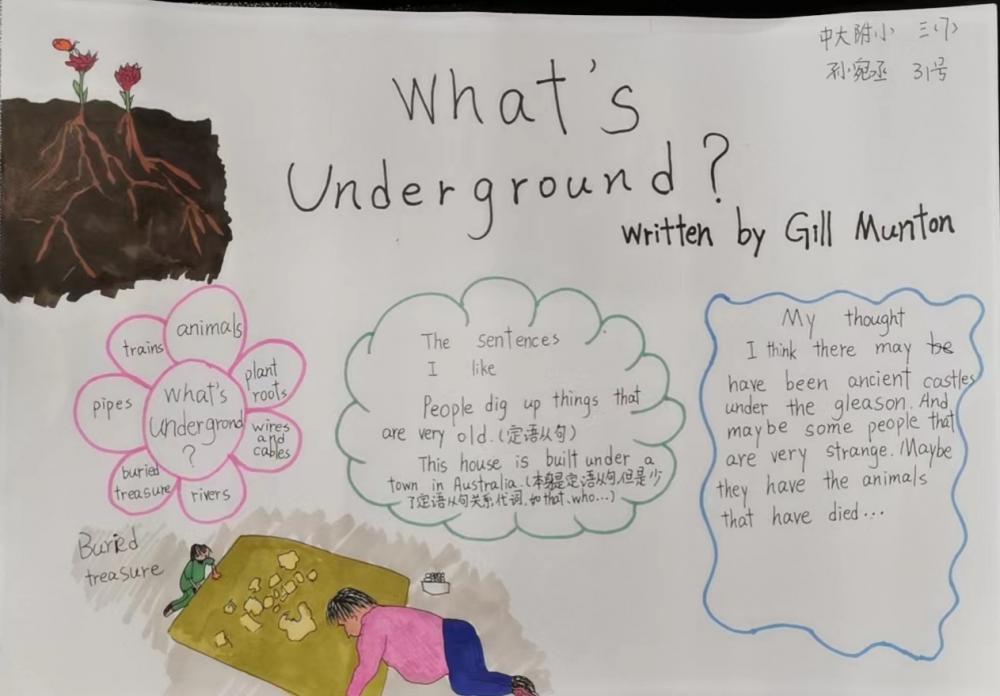 中大附小 三(7)
孙宛丞 31号
What's
Underground?
written by Gill Munton
animals
trains
plant
roots
pipes
what's
Undergrond
?
wires
and
cables
buried
treasure
rivers
The sentences
I like
People dig up things that
are very old.(定语从句)
This house is built under a
town in Australia.(本身是定语从句,但是少
了定语从句关系代词,如that、who...)
My thought
I think there may be
have been ancient castles
under the gleason. And
maybe some people that
are very strange. Maybe
they have the animals
that have died...
Buried
treasure